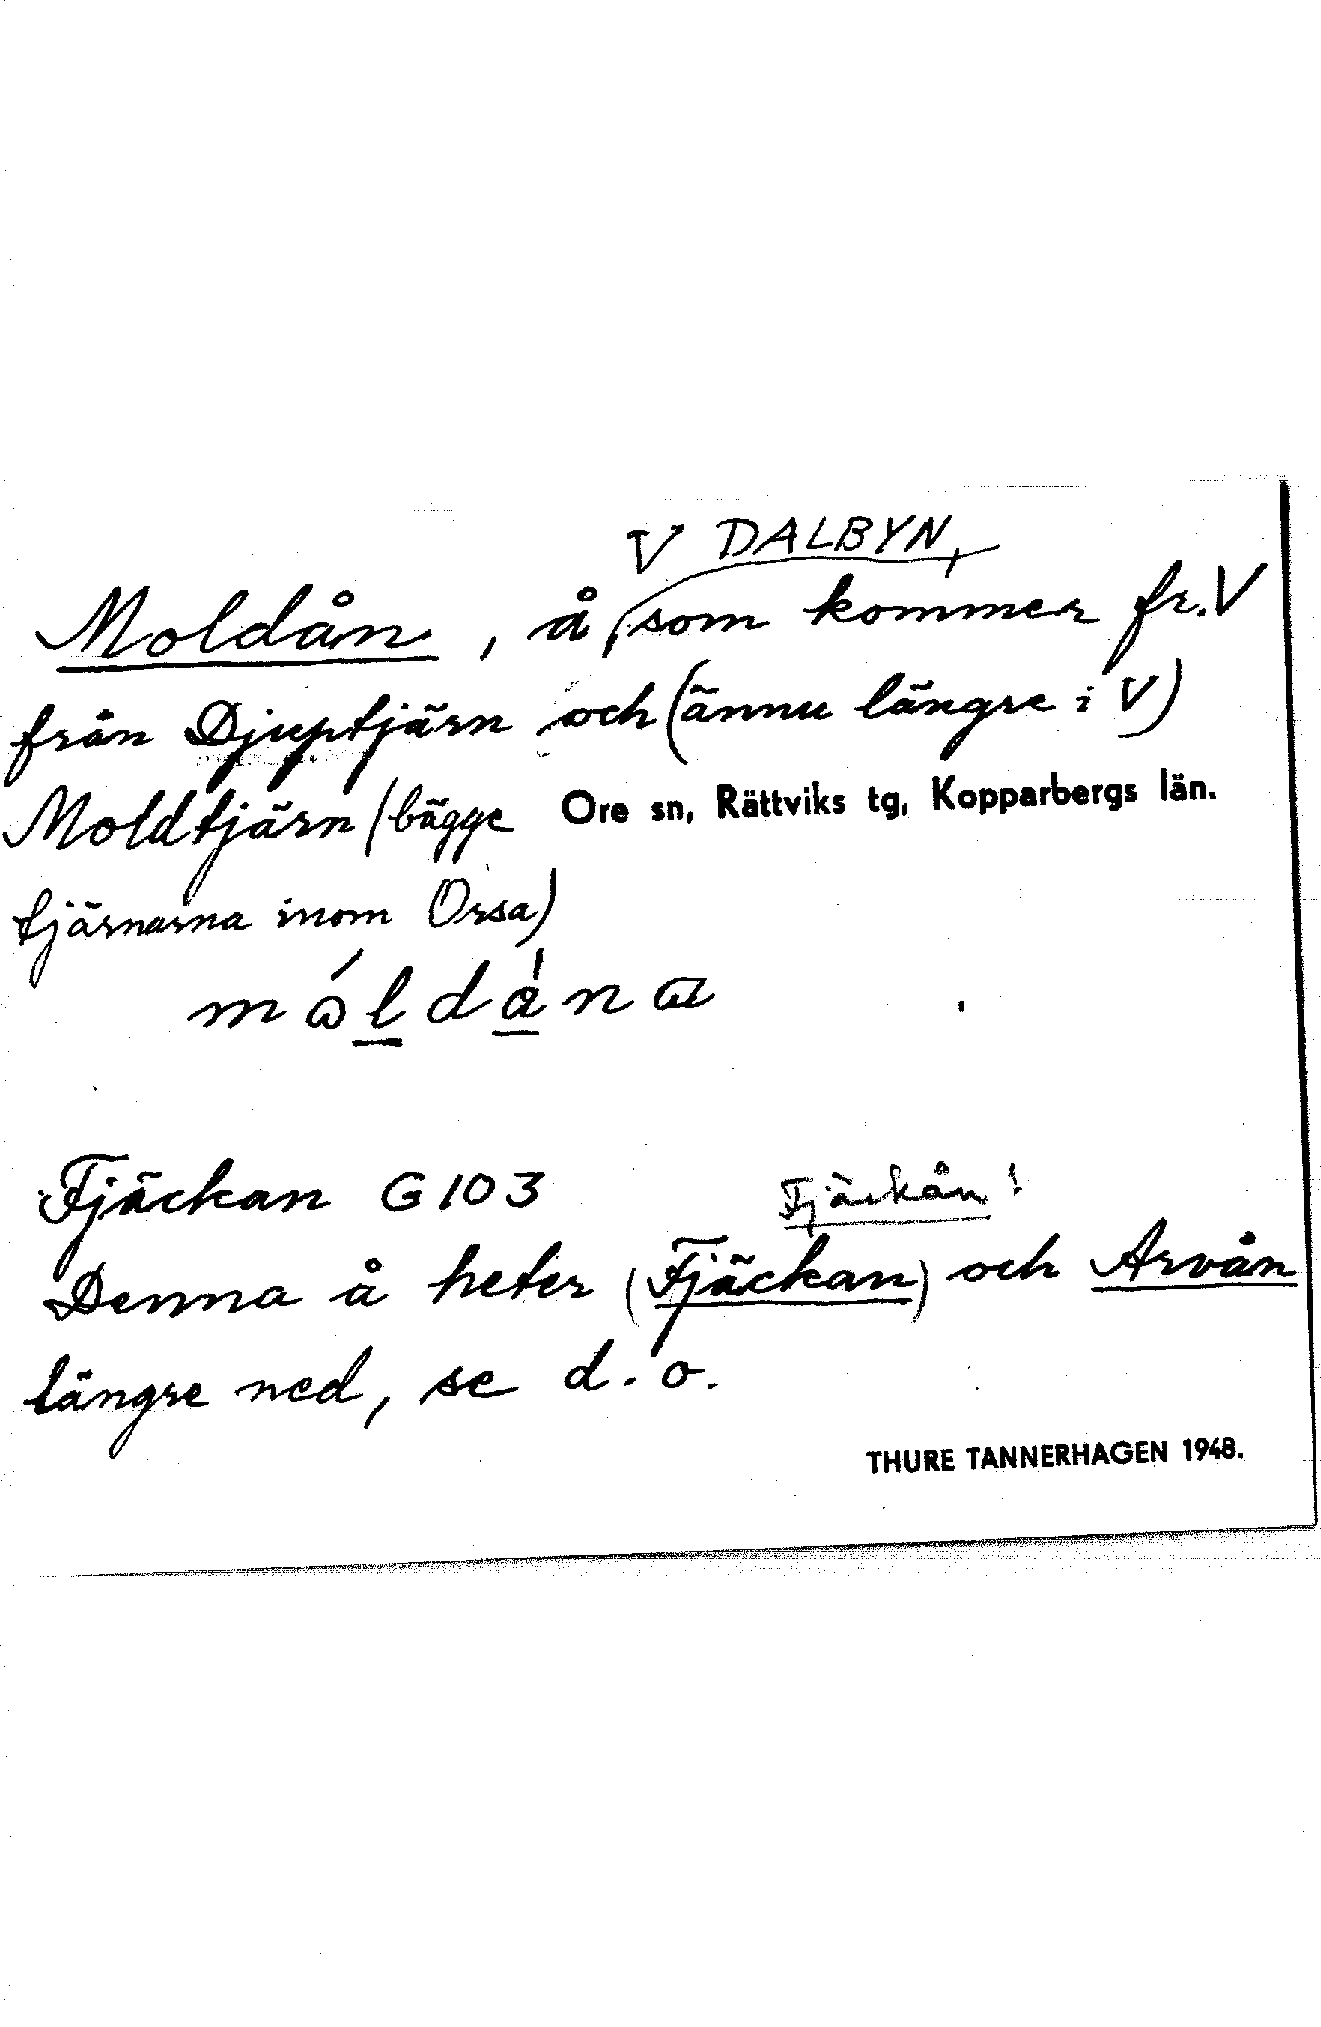 V DALBYN,
Moldån, å som kommer fr. V
från Djuptjärn och (ännu längre i V)
Moldtjärn (bägge
Ore sn, Rättviks tg, Kopparbergs län.
tjärnarna inom Orsa)
Fjäckan G 103
Fjäckån!
Denna å heter (Fjäckan) och Arvån
längre ned, se d.o.
THURE TANNERHAGEN 1948.